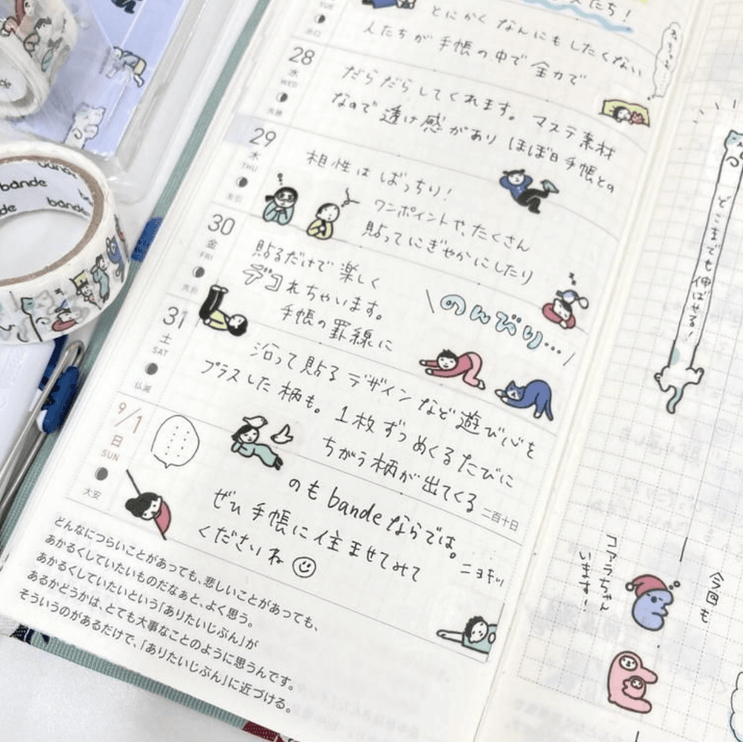 人たち!
とにかくなんにもしたくない
人たちが手帳の中で全力で
28
水
WED
だらだらしてくれます。マステ素材
なので透け感があり ほぼ日手帳との
29
木
THU
相性はばっちり!
ワンポイントや、たくさん
貼ってにぎやかにしたり
30
金
FRI
貼るだけで楽しく
デコれちゃいます。
手帳の罫線に
のんびり…
31
土
SAT
仏滅
沿って貼るデザインなど遊び心を
プラスした柄も。1枚ずつめくるたびに
ちがう柄が出てくる
二百十日
9/1
日
SUN
大安
のもbandeならでは。
ぜひ手帳に住ませてみて
くださいね
ニョキッ
どんなにつらいことがあっても、悲しいことがあっても、
あかるくしていたいものだなぁと、よく思う。
あかるくしていたいという「ありたいじぶん」が
あるかどうかは、とても大事なことのように思うんです。
そういうのがあるだけで、「ありたいじぶん」に近づける。
どこまでも伸ばせる!
今回も
コアラちゃん
います!
bande
bande
bande